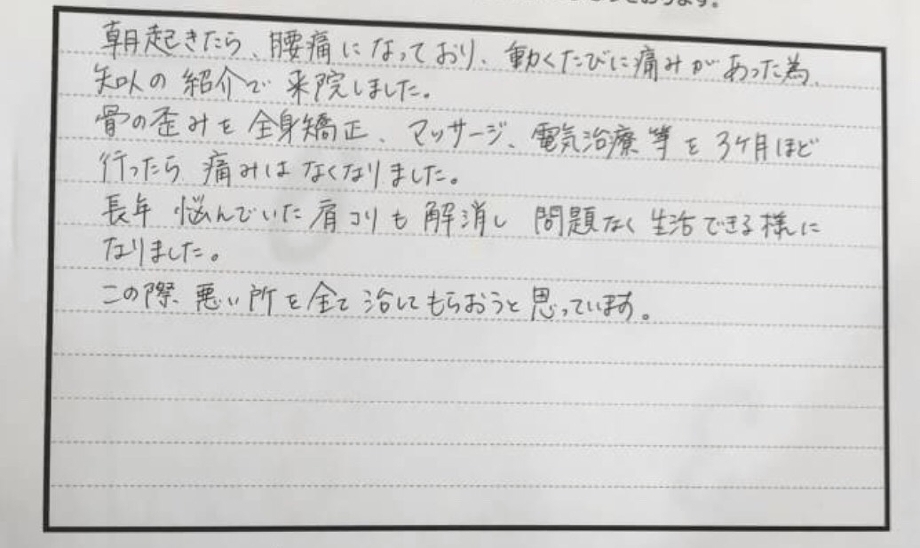 おります。
朝起きたら、腰痛になっており、動くたびに痛みがあった為、
知人の紹介で来院しました。
骨の歪みを全身矯正、マッサージ、電気治療等を3ケ月ほど
行ったら痛みはなくなりました。
長年悩んでいた肩コリも解消し問題なく生活できる様に
なりました。
この際、悪い所を全て治してもらおうと思っています。